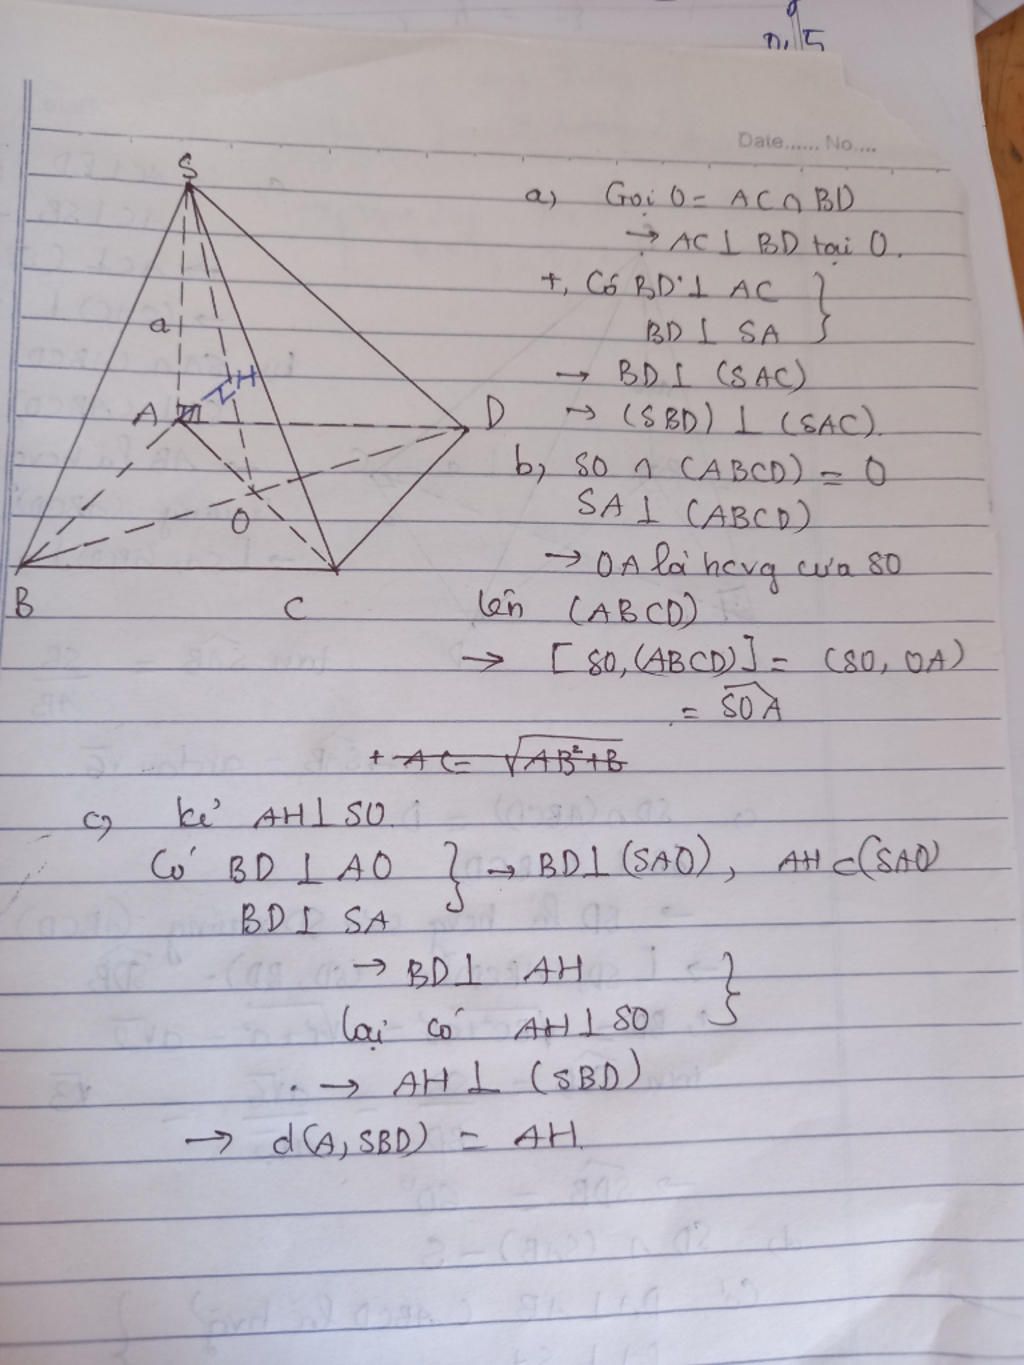 n,5
Date...... No....
S
a
H
A
D
O
B
C
a, Gọi O = AC ∩ BD
→ AC ⊥ BD tại O.
+, Có BD ⊥ AC
BD ⊥ SA }
→ BD ⊥ (SAC)
→ (SBD) ⊥ (SAC).
b, SO ∩ (ABCD) = O
SA ⊥ (ABCD)
→ OA là hcvg của SO
lên (ABCD)
→ [SO, (ABCD)] = (SO, OA)
= \widehat{SOA}
+ AC = √(AB²+B
c, kẻ AH ⊥ SO.
Có BD ⊥ AO } → BD ⊥ (SAO), AH ⊂ (SAO)
BD ⊥ SA
→ BD ⊥ AH }
lại có AH ⊥ SO
→ AH ⊥ (SBD)
→ d(A, SBD) = AH.